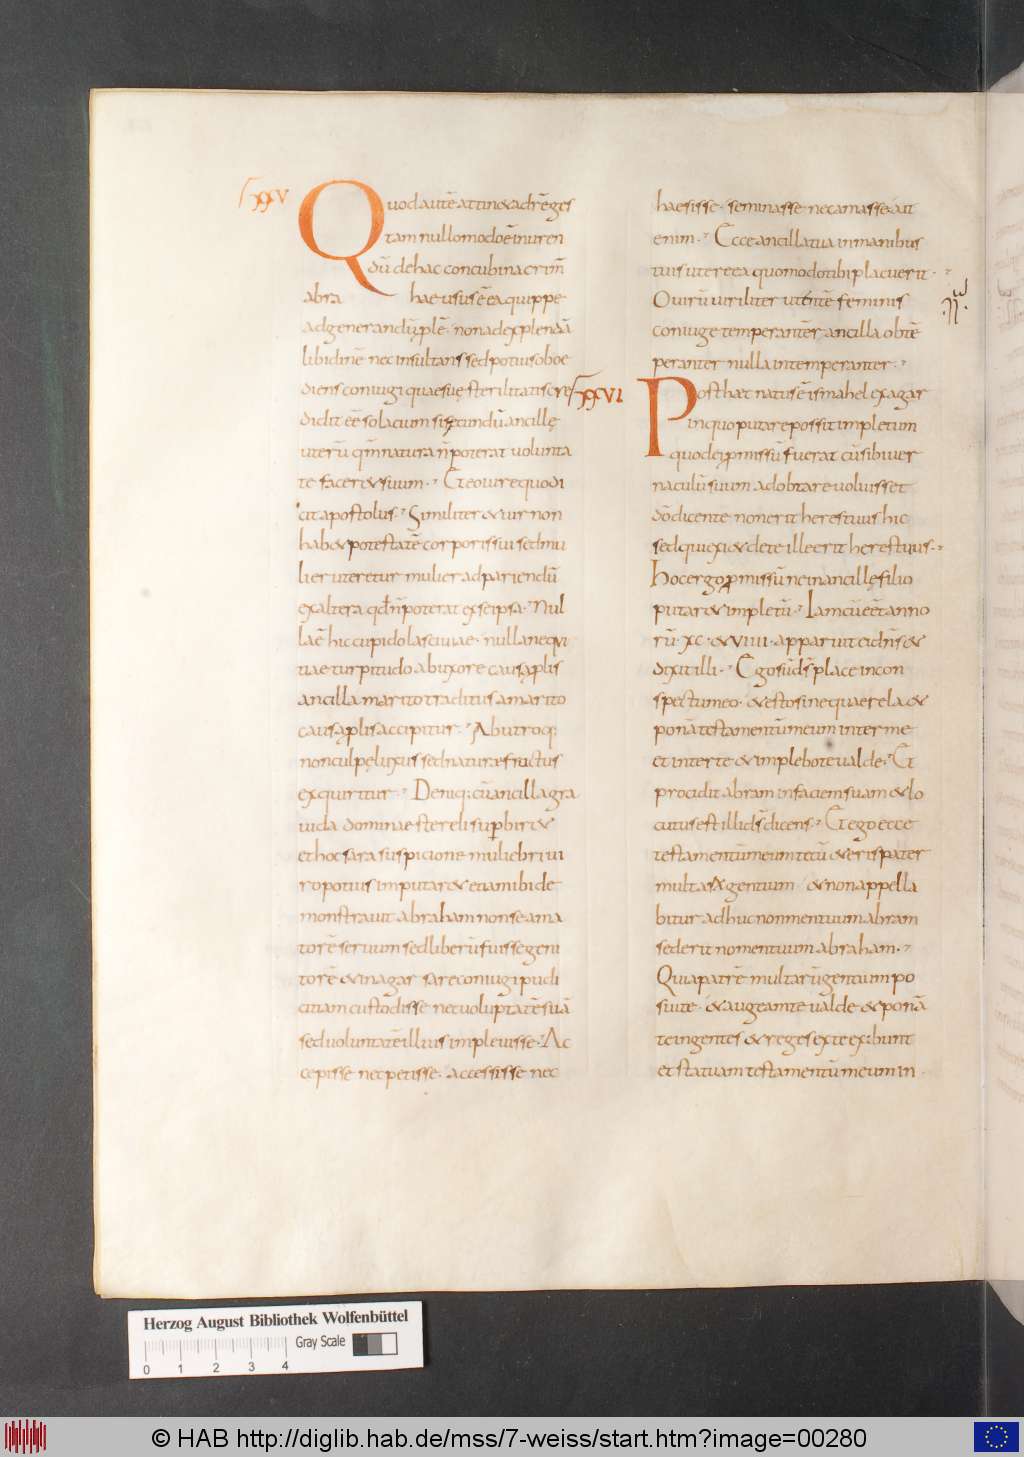 LXXV
Quod autē attin&adtrēges
tam nullo modo ē inuren
dū de hac concubina crim̄
abra hae usus ē ea quippe
ad generandā ꝓlē · non ad explendā
libidinē nec insultans sed potius oboe
diens coniugi quae suę sterilitatis cre
didit eē solacium si fecundū ancillę
uterū qm̄ natura n̄ poterat uolunta
te facer& suum · Et eo iure quo di
cit apostolus · Similiter & uir non
hab& potestatē corporis sui sed mu
lier uteretur mulier ad pariendū
ex altera qd̄ n̄ poterat ex se ipsa · Nul
la ē hic cupido lasciuiae · nulla nequi
tiae turpitudo ab uxore causa ꝓlis
ancilla marito traditur a marito
causa ꝓlis accipitur · Ab utroq;
non culpę luxus sed naturae fructus
exquiritur · Deniq; cū ancilla gra
uida dominae stereli supbir&
et hoc sara suspicione muliebri ui
ro potius imputar& etiam ibi de
monstrauit abraham non se ama
torē seruum sed liberū fuisse geni
torē & in agar sare coniugi pudi
citiam custodisse nec uoluptatē suā
sed uoluntatē illius impleuisse · Ac
cepisse nec petisse · accessisse nec
haesisse · seminasse nec amasse · ait
enim · Ecce ancilla tua in manibus
tuis utere ea quomodo tibi placuerit ·
O uirū uiriliter utentē feminis
coniuge temperanter ancilla obtē
peranter nulla intemperanter ·
LXXVI
Post haec natus ē ismahel ex agar
in quo putare possit impletum
quod ei ꝓmissū fuerat cū sibi uer
naculū suum adobtare uoluisset
dō dicente non erit heres tuus hic
sed qui exi& de te ille erit heres tuus ·
Hoc ergo ꝓmissū ne in ancillę filio
putar& impletū · Iam cū eēt anno
rū · xc · & uiiii · apparuit ei dn̄s &
dixit illi · Ego sū ds̄ place in con
spectu meo · & esto sine quaerela &
ponā testamentū meum inter me
et inter te & implebo te ualde · Et
procidit abram in faciem suam & lo
cutus est illi ds̄ dicens · Et ego ecce
testamentū meum tecū & eris pater
multarū gentium & non appella
bitur adhuc nomen tuum abram
sed erit nomen tuum abraham ·
Quia patrē multarū gentium po
sui te · & augeam te ualde & ponā
te in gentes & reges ex te exibunt
et statuam testamentū meum in
Herzog August Bibliothek Wolfenbüttel
Gray Scale
0 1 2 3 4
© HAB http://diglib.hab.de/mss/7-weiss/start.htm?image=00280